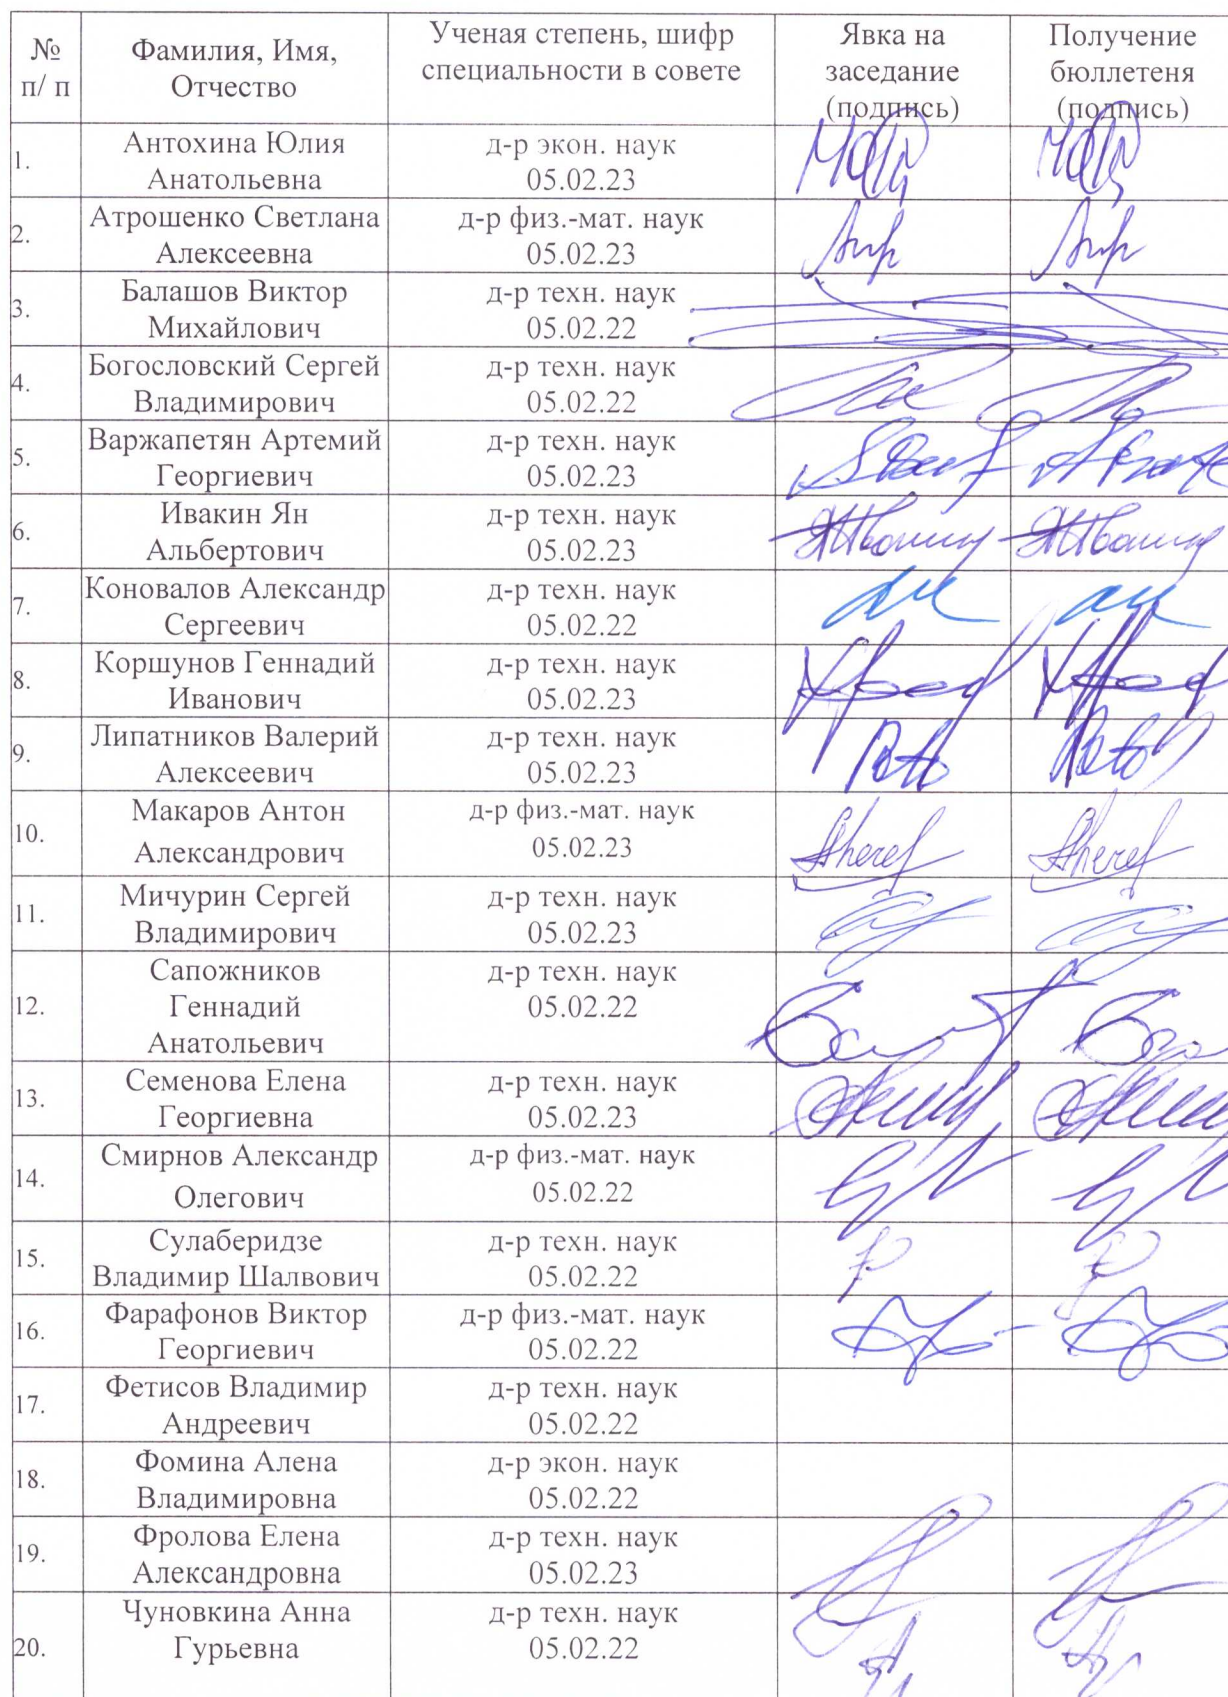 №
п/ п
Фамилия, Имя,
Отчество
Ученая степень, шифр
специальности в совете
Явка на
заседание
(подпись)
Получение
бюллетеня
(подпись)
1.
Антохина Юлия
Анатольевна
д-р экон. наук
05.02.23
2.
Атрошенко Светлана
Алексеевна
д-р физ.-мат. наук
05.02.23
3.
Балашов Виктор
Михайлович
д-р техн. наук
05.02.22
4.
Богословский Сергей
Владимирович
д-р техн. наук
05.02.22
5.
Варжапетян Артемий
Георгиевич
д-р техн. наук
05.02.23
6.
Ивакин Ян
Альбертович
д-р техн. наук
05.02.23
7.
Коновалов Александр
Сергеевич
д-р техн. наук
05.02.22
8.
Коршунов Геннадий
Иванович
д-р техн. наук
05.02.23
9.
Липатников Валерий
Алексеевич
д-р техн. наук
05.02.23
10.
Макаров Антон
Александрович
д-р физ.-мат. наук
05.02.23
11.
Мичурин Сергей
Владимирович
д-р техн. наук
05.02.23
12.
Сапожников
Геннадий
Анатольевич
д-р техн. наук
05.02.22
13.
Семенова Елена
Георгиевна
д-р техн. наук
05.02.23
14.
Смирнов Александр
Олегович
д-р физ.-мат. наук
05.02.22
15.
Сулаберидзе
Владимир Шалвович
д-р техн. наук
05.02.22
16.
Фарафонов Виктор
Георгиевич
д-р физ.-мат. наук
05.02.22
17.
Фетисов Владимир
Андреевич
д-р техн. наук
05.02.22
18.
Фомина Алена
Владимировна
д-р экон. наук
05.02.22
19.
Фролова Елена
Александровна
д-р техн. наук
05.02.23
20.
Чуновкина Анна
Гурьевна
д-р техн. наук
05.02.22